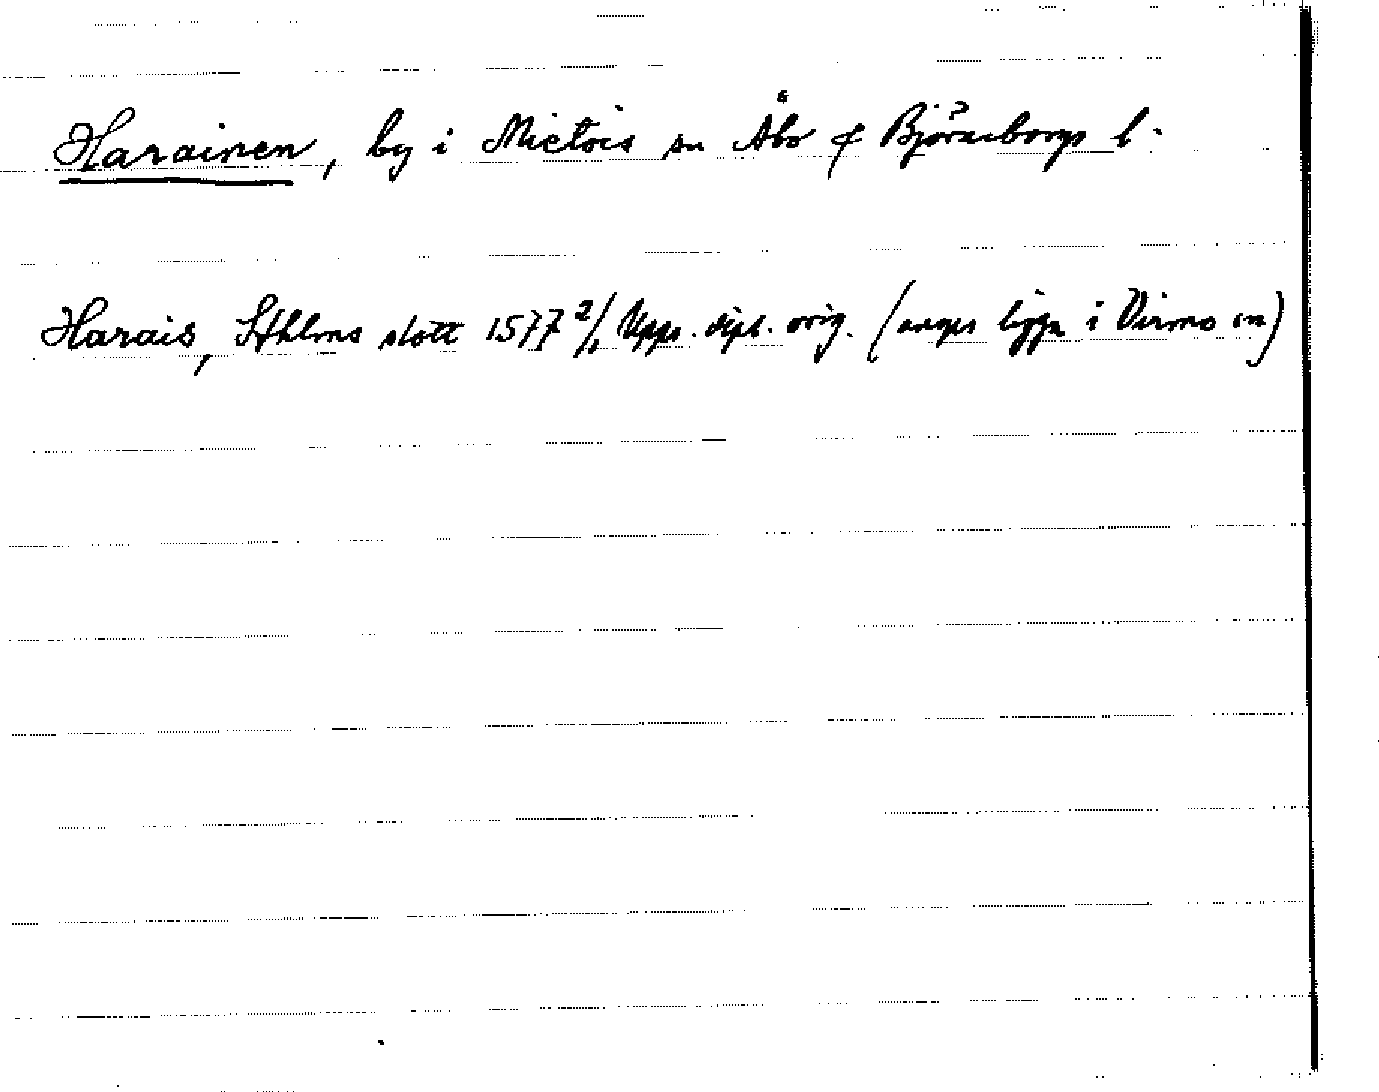 Harainen, by i Mietois sn Åbo & Björneborgs l.
Harais, Sthlms slott 1577 2/1 Upps. dipl. orig. (anges ligga i Virmo sn)